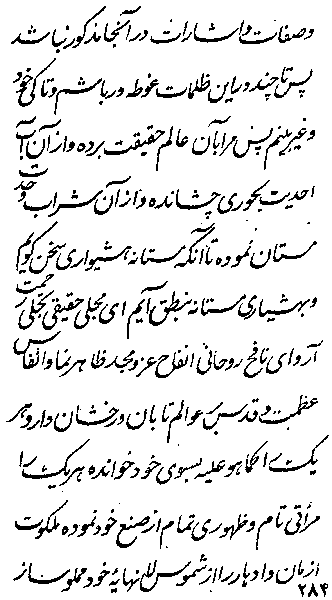 وصفات و اشارات در آنجا مذکور نباشد
پس تا چند در این ظلمات غوطه ور باشم و تا کی خود
و غیر بینم پس مرا بآن عالم حقیقت برده و از آن آب
احدیت بخوری چشانده و از آن شراب وحدت
مستان نموده تا آنکه مستانه هشیواری سخن گویم
و بهشیاری مستانه بنطق آیم ای مجلی حقیقی تجلی رحمت
آر و ای نافخ روحانی انفاح عز و مجد ظاهر نما و انفاس
عظمت و قدس بر عوالم تابان و رخشان دار و هر
یک را کما هو علیه بسوی خود خوانده هر یک را
مرأتی تام و ظهوری تمام از صنع خود نموده ملکوت
ازمان و ادهار را از شموس لا نهایهٔ خود مملو ساز
۲۸۴